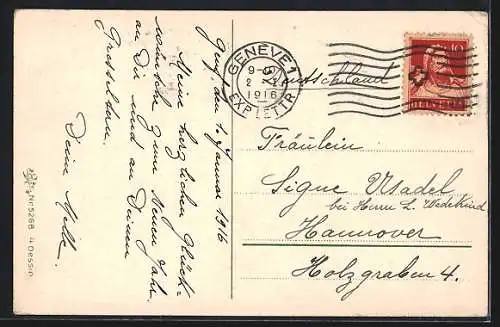 Genf, den 1. Januar 1916
Meine herzlichen Glück-
wünsche zum Neuen Jahr,
an Die und an Deinen
Grosseltern.
Deine Milli.
Nr. 5288 4 Dessin
GENEVE 1
9-
2 I
1916
EXP. LETTR.
10
HELVETIA
Deutschland
Fräulein
Signe Usadel
bei Herrn L. Wedekind
Hannover
Holzgraben 4.